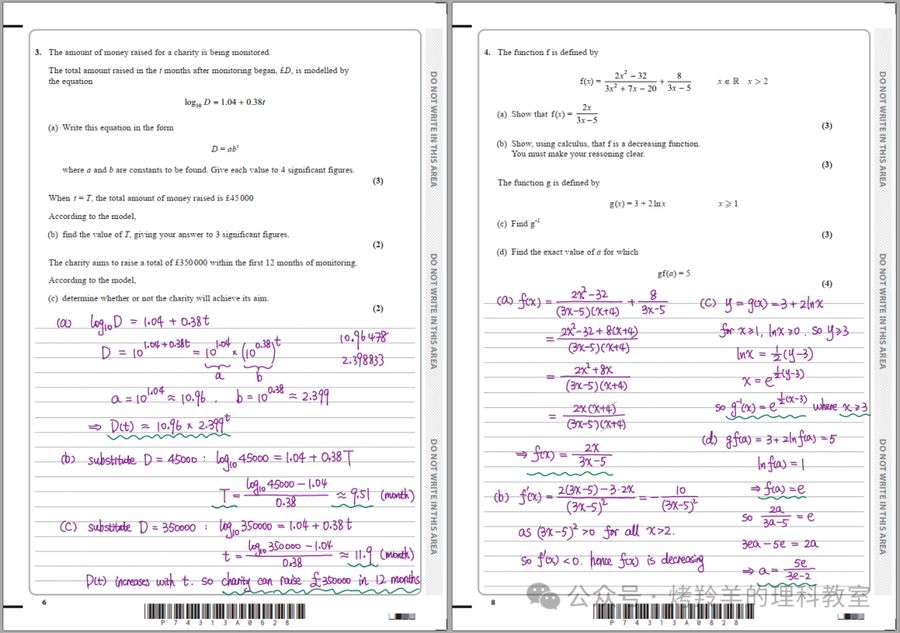 3. The amount of money raised for a charity is being monitored.
The total amount raised in the t months after monitoring began, £D, is modelled by
the equation
log₁₀ D = 1.04 + 0.38t
(a) Write this equation in the form
D = abᵗ
where a and b are constants to be found. Give each value to 4 significant figures.
(3)
When t = T, the total amount of money raised is £45 000
According to the model,
(b) find the value of T, giving your answer to 3 significant figures.
(2)
The charity aims to raise a total of £350 000 within the first 12 months of monitoring.
According to the model,
(c) determine whether or not the charity will achieve its aim.
(2)
(a) log₁₀D = 1.04 + 0.38t
D = 10^(1.04+0.38t) = 10^1.04 × (10^0.38)^t
a b
10.96478
2.398833
a = 10^1.04 ≈ 10.96 . b = 10^0.38 ≈ 2.399
⇒ D(t) ≈ 10.96 × 2.399^t
(b) substitute D = 45000 : log₁₀ 45000 = 1.04 + 0.38T
T = (log₁₀ 45000 − 1.04)/0.38 ≈ 9.51 (month)
(C) substitute D = 350000 : log₁₀ 350000 = 1.04 + 0.38t
t = (log₁₀ 350000 − 1.04)/0.38 ≈ 11.9 (month)
D(t) increases with t. so charity can raise £350000 in 12 months
6
P74313A0628
DO NOT WRITE IN THIS AREA
DO NOT WRITE IN THIS AREA
DO NOT WRITE IN THIS AREA
4. The function f is defined by
f(x) = (2x² − 32)/(3x² + 7x − 20) + 8/(3x − 5) x ∈ ℝ x > 2
(a) Show that f(x) = 2x/(3x − 5)
(3)
(b) Show, using calculus, that f is a decreasing function.
You must make your reasoning clear.
(3)
The function g is defined by
g(x) = 3 + 2 ln x x ⩾ 1
(c) Find g⁻¹
(3)
(d) Find the exact value of a for which
gf(a) = 5
(4)
(a) f(x) = (2x²−32)/((3x−5)(x+4)) + 8/(3x−5)
= (2x²−32+8(x+4))/((3x−5)(x+4))
= (2x²+8x)/((3x−5)(x+4))
= 2x(x+4)/((3x−5)(x+4))
⇒ f(x) = 2x/(3x−5)
(b) f'(x) = (2(3x−5)−3·2x)/(3x−5)² = −10/(3x−5)²
as (3x−5)² >0 for all x>2.
so f'(x) <0. hence f(x) is decreasing
(C) y = g(x) = 3+2lnx
for x≥1, lnx≥0. so y≥3
lnx = ½(y−3)
x = e^(½(y−3))
so g⁻¹(x) = e^(½(x−3)) where x≥3
(d) gf(a) = 3+2lnf(a) = 5
lnf(a) = 1
⇒ f(a) = e
so 2a/(3a−5) = e
3ea − 5e = 2a
⇒ a = 5e/(3e−2)
8
P74313A0828
DO NOT WRITE IN THIS AREA
DO NOT WRITE IN THIS AREA
DO NOT WRITE IN THIS AREA
公众号 · 烤羚羊的理科教室